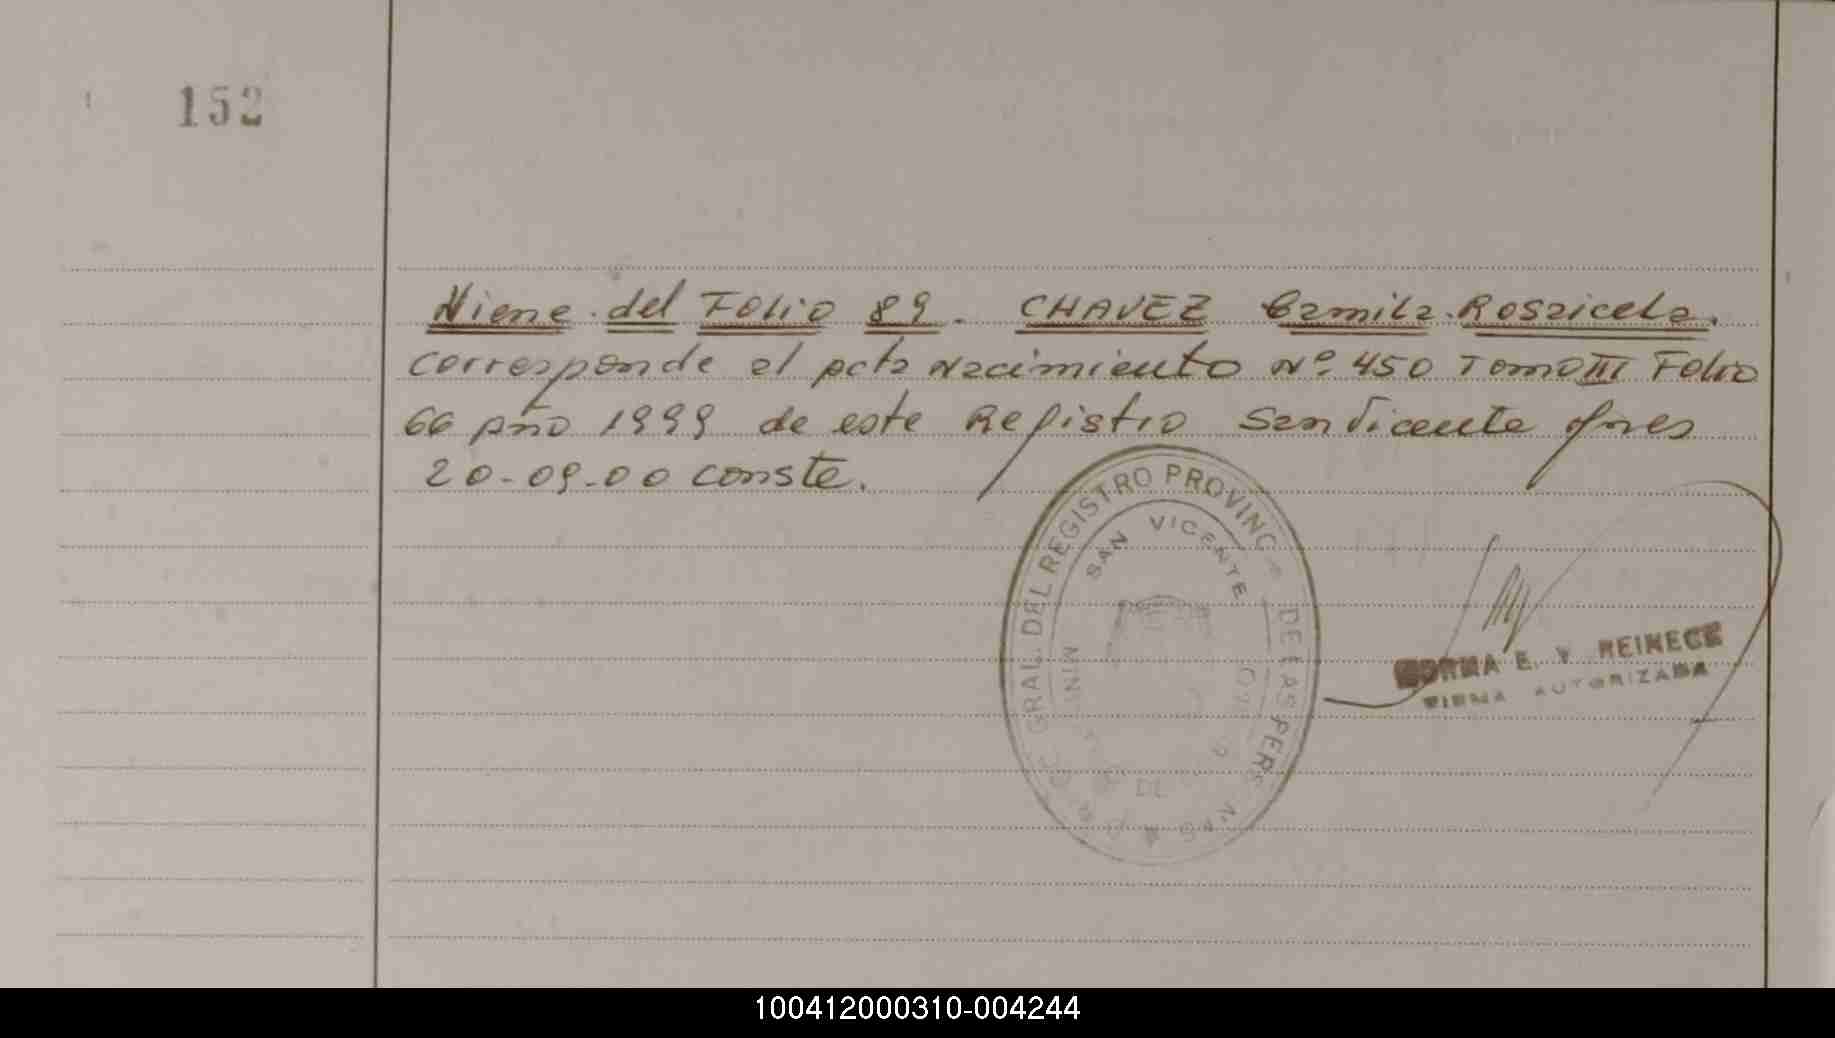 152
Viene del Folio 89. CHAVEZ Camila Rosaicela.
corresponde al acta Nacimiento Nº 450 Tomo III Folio
66 año 1999 de este Registro San Vicente
20-09-00 conste.
GRAL. DEL REGISTRO PROVINC DE LAS PERS
SAN VICENTE
NORMA E. V. REINECK
FIRMA AUTORIZADA
100412000310-004244